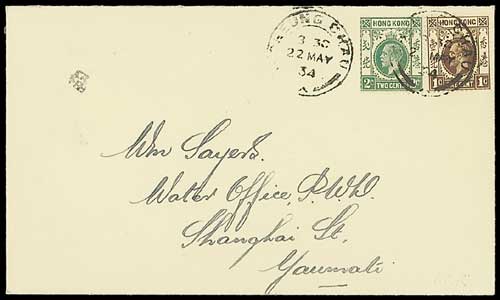 CHEUNG CHAU
3 30
22 MAY
34
HONG KONG
2C TWO CENTS
HONG KONG
1C 1C
Wm Sayer.
Water Office, P.W.D.
Shanghai St.
Yaumati